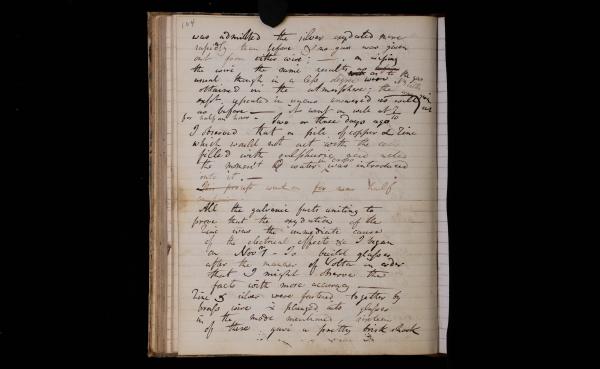 104
was admitted the silver oxydated more
rapidly than before & no gas was given
out from either wire; — on wiping
the wire the same results
usual though in a less degree as to the gas
obtained in the atmosphere; the
expt. repeated in vacuo answered as well
as before — It went on well at
for half an hour - Two or three days ago
I observed that a pile of copper & Zinc
which would not act with the
filled with sulphuric acid
the moment water was introduced
into it. —
process went on for near half
All the galvanic facts uniting to
prove that the oxydation of the
Zinc was the immediate cause
of the electrical effects &c I began
on Novr - To build glasses
after the manner of Volta in order
that I might observe the
facts with more accuracy —
Zinc & silver were fastened together by
brass wire & plunged into glasses
in the mode mentioned, sixteen
of these gave a pretty brisk shock